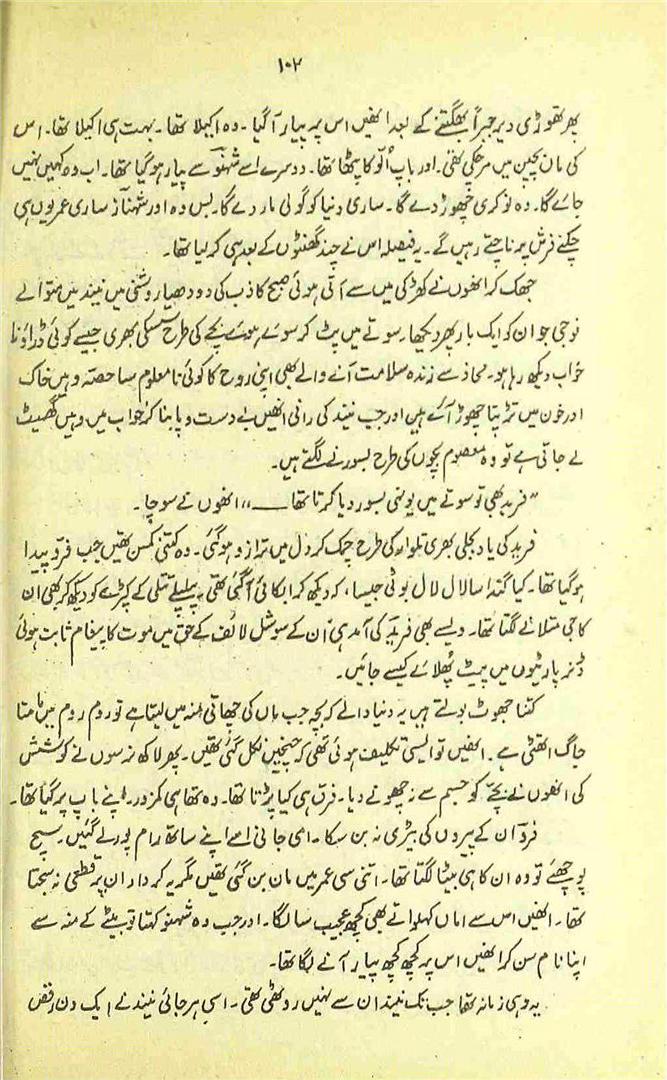 ۱۰۲
پھر تھوڑی دیر جبراً بھگتنے کے بعد انھیں اس پہ پیار آگیا۔ وہ اکیلا تھا۔ بہت ہی اکیلا تھا۔ اس
کی ماں بچپن میں مر چکی تھی۔ اور باپ اُلّو کا پٹھا تھا۔ دوسرے اسے شہنّو سے پیار ہو گیا تھا۔ اب وہ کہیں نہیں
جائے گا۔ وہ نوکری چھوڑ دے گا۔ ساری دنیا کو گولی مار دے گا۔ بس وہ اور شہناز ساری عمر یوں ہی
چکنے فرش پہ ناچتے رہیں گے۔ یہ فیصلہ اس نے چند گھنٹوں کے بعد ہی کر لیا تھا۔
جھک کر انھوں نے کھڑکی میں سے آتی ہوئی صبح کاذب کی دودھیا روشنی میں نیند میں متوالے
نوجی جوان کو ایک بار پھر دیکھا۔ سوتے میں پٹ کر سوئے ہوئے بچے کی طرح سسکی بھری جیسے کوئی ڈراؤنا
خواب دیکھ رہا ہو۔ محاذ سے زندہ سلامت آنے والے بھی اپنی روح کا کوئی نامعلوم سا حصہ وہیں خاک
اور خون میں تڑپتا چھوڑ آتے ہیں اور جب نیند کی رانی انھیں بے دست و پا بنا کر خواب میں وہیں گھسیٹ
لے جاتی ہے تو وہ معصوم بچوں کی طرح بسورنے لگتے ہیں۔
”فرید بھی تو سوتے میں یونہی بسور دیا کرتا تھا ——،، انھوں نے سوچا۔
فرید کی یاد بجلی بھری تلوار کی طرح چمک کر دل میں ترازو ہو گئی۔ وہ کتنی کمسن تھیں جب فرّو پیدا
ہو گیا تھا۔ کیا گندا سا لال لال بوٹی جیسا، کہ دیکھ کر ابکائی آگئی تھی۔ پلپلے تتلی کے کپڑے کو دیکھ کر بھی ان
کا جی متلانے لگتا تھا۔ ویسے بھی فرید کی آمد ہی ان کے سوشل لائف کے حق میں موت کا پیغام ثابت ہوئی
ڈنر پارٹیوں میں پیٹ پُھلائے کیسے جائیں۔
کتنا جھوٹ بولتے ہیں یہ دنیا والے کہ بچہ جب ماں کی چھاتی منہ میں لیتا ہے تو روم روم میں مامتا
جاگ اٹھتی ہے۔ انھیں تو ایسی تکلیف ہوئی تھی کہ چیخیں نکل گئی تھیں۔ پھر لاکھ نرسوں نے کوشش
کی انھوں نے بچے کو جسم سے نہ چھونے دیا۔ فرق ہی کیا پڑتا تھا۔ وہ تھا ہی کمزور۔ اپنے باپ پر گیا تھا۔
فرّو ان کے پیروں کی بیڑی نہ بن سکا۔ امی جانی اسے اپنے ساتھ رام پور لے گئیں۔ سچ
پوچھئے تو وہ ان کا ہی بیٹا لگتا تھا۔ اتنی سی عمر میں ماں بن گئی تھیں مگر یہ کردار ان پر قطعی نہ سجتا
تھا۔ انھیں اس سے اماں کہلواتے بھی کچھ عجیب سا لگا۔ اور جب وہ شہمنو کہتا تو بیٹے کے منہ سے
اپنا نام سن کر انھیں اس پہ کچھ کچھ پیار آنے لگا تھا۔
یہ وہی زمانہ تھا جب تک نیند ان سے نہیں روٹھی تھی۔ اسی ہرجائی نیند نے ایک دن رقص